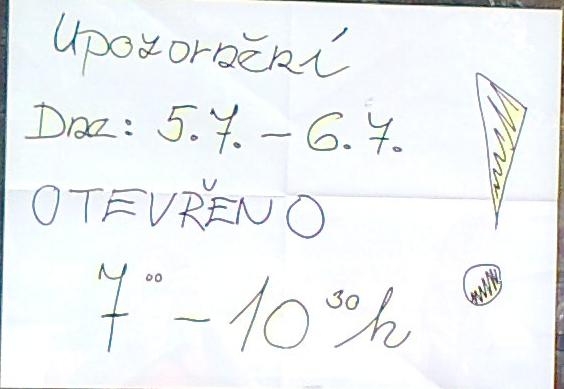 Upozornění
Dne: 5.7. - 6.7.
OTEVŘENO
7⁰⁰ - 10³⁰ h